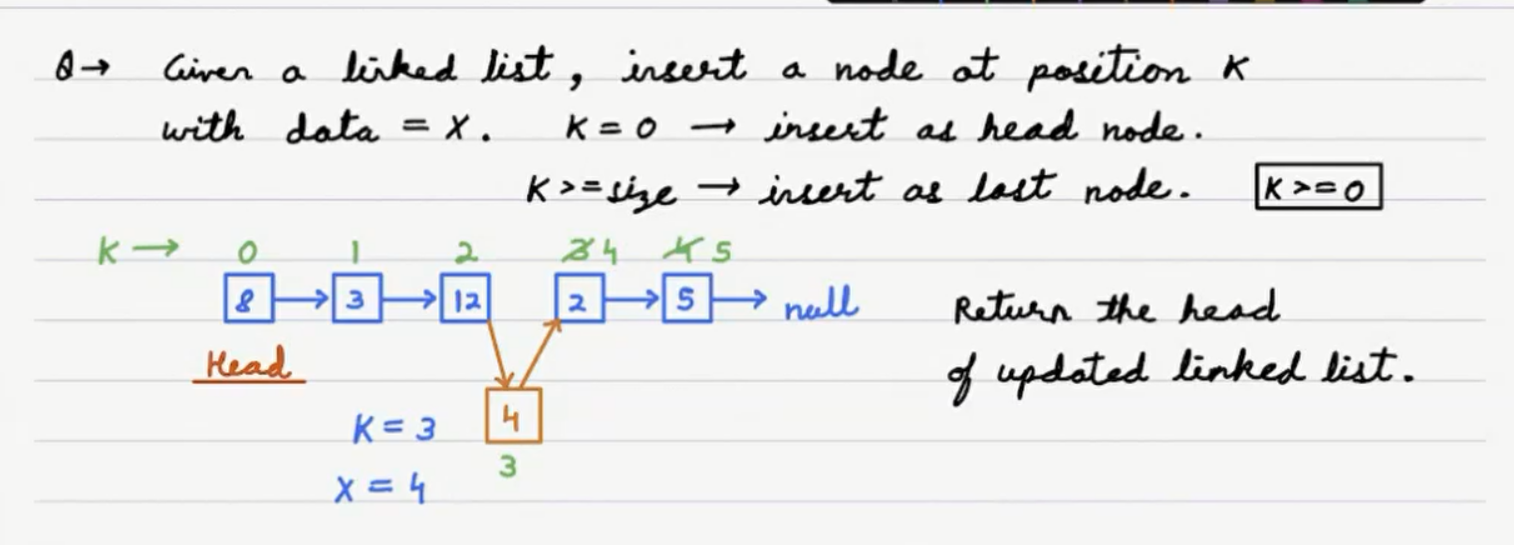 Q→ Given a linked list, insert a node at position K
with data = X. K = 0 → insert as head node.
K >= size → insert as last node. K >= 0
K → 0 1 2 3 4 4 5
8 → 3 → 12 2 → 5 → null
Return the head
Head
of updated linked list.
4
K = 3
3
X = 4